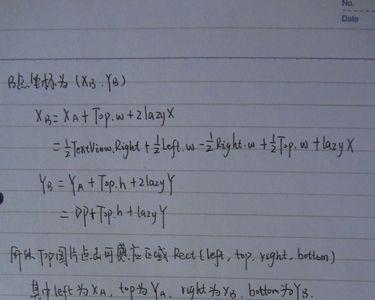 No.
Date
B点坐标为 (XB, YB)
XB = XA + Top.w + 2lazyX
= 1/2 TextView.Right + 1/2 Left.w - 1/2 Right.w + 1/2 Top.w + lazyX
YB = YA + Top.h + 2lazyY
= DP + Top.h + lazyY
所以 Top图片点击可 应区域 Rect (left, top, right, bottom)
其中 left为 XA, top为 YA, right为 XB, bottom为 YB.